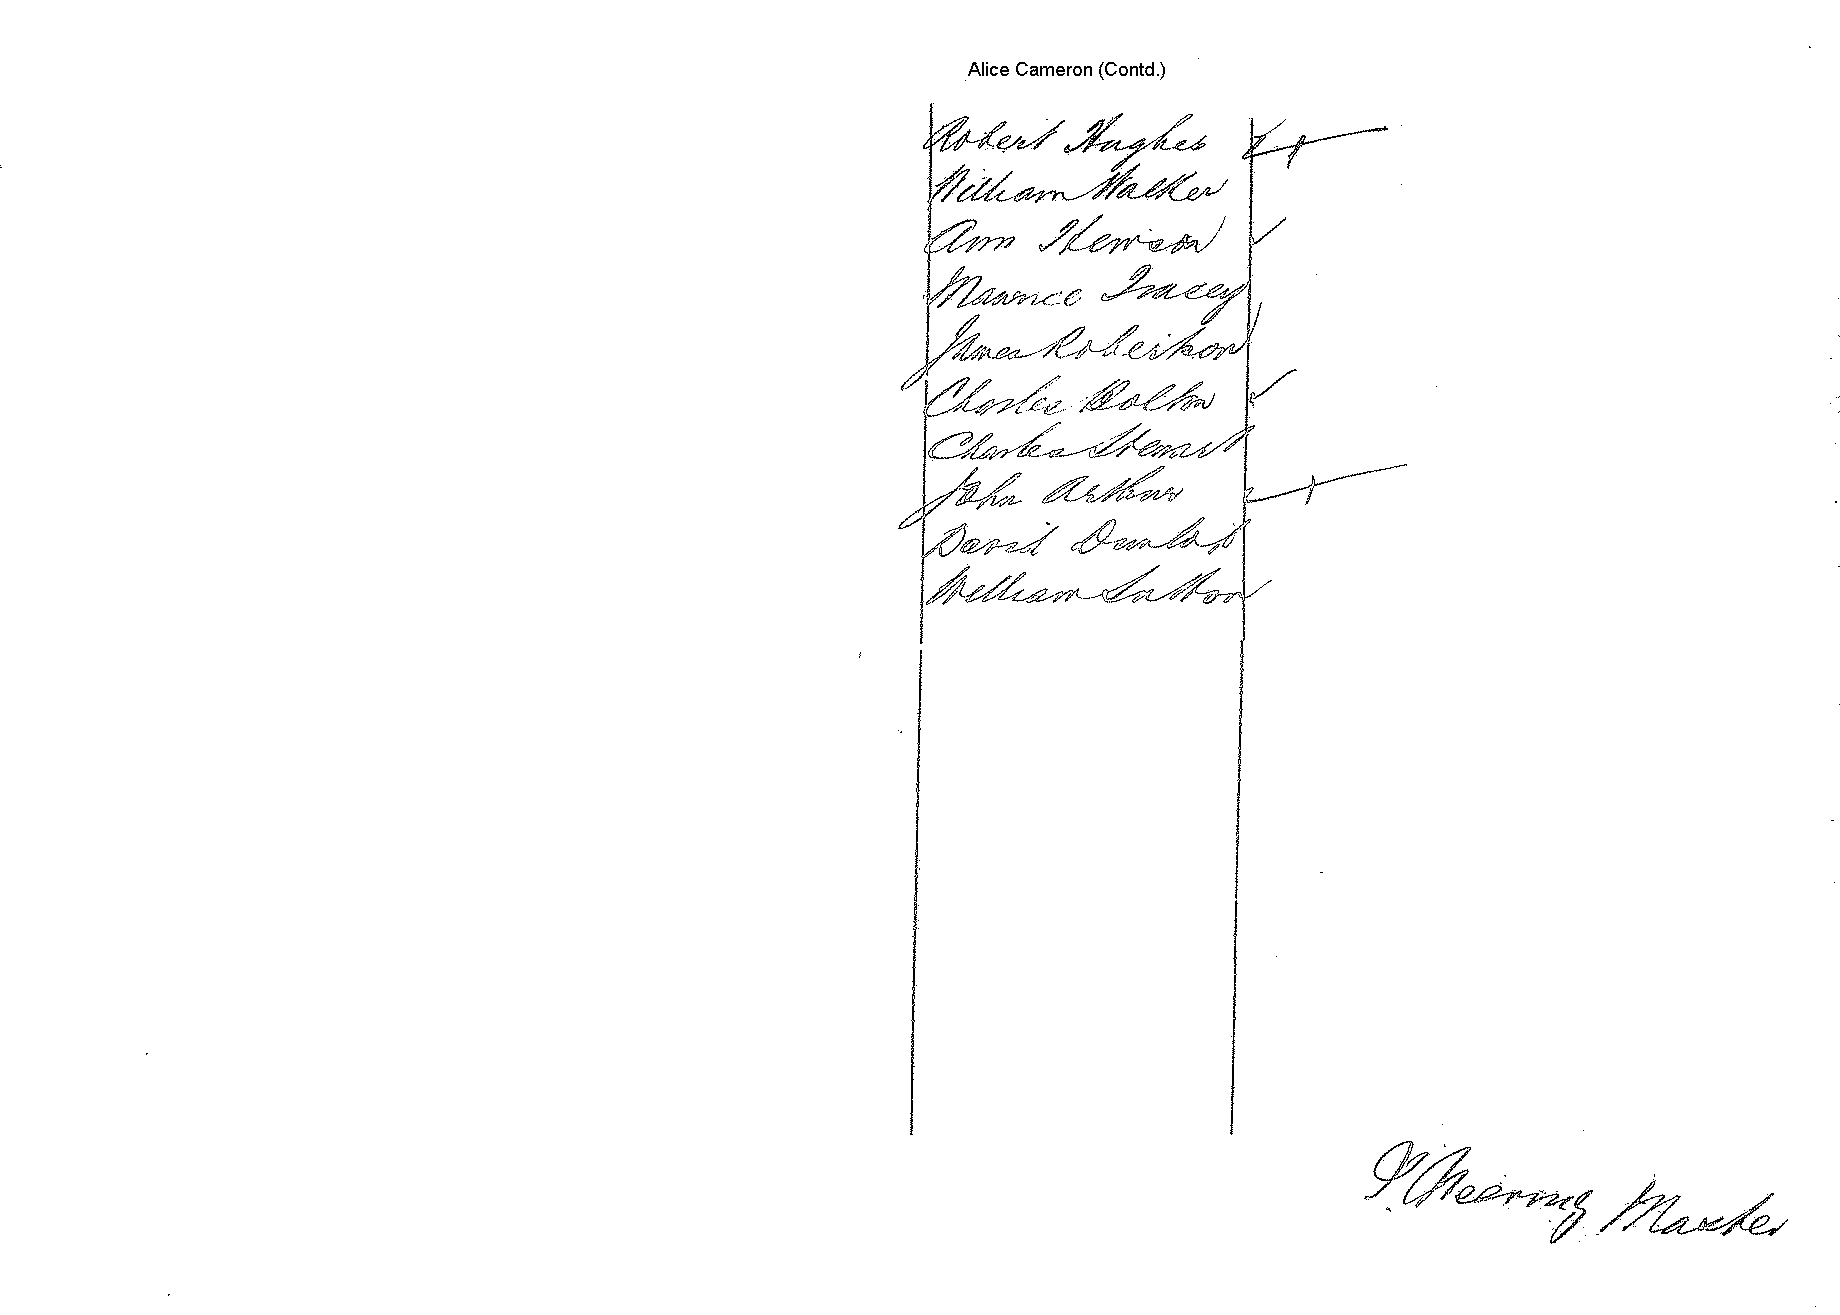 Alice Cameron (Contd.)
Robert Hughes
William Walker
Ann Hewson
Maurice Tracey
James Robertson
Charles Bolton
Charles Stewart
John Arthur
David Dunlop
William Sutton
Master